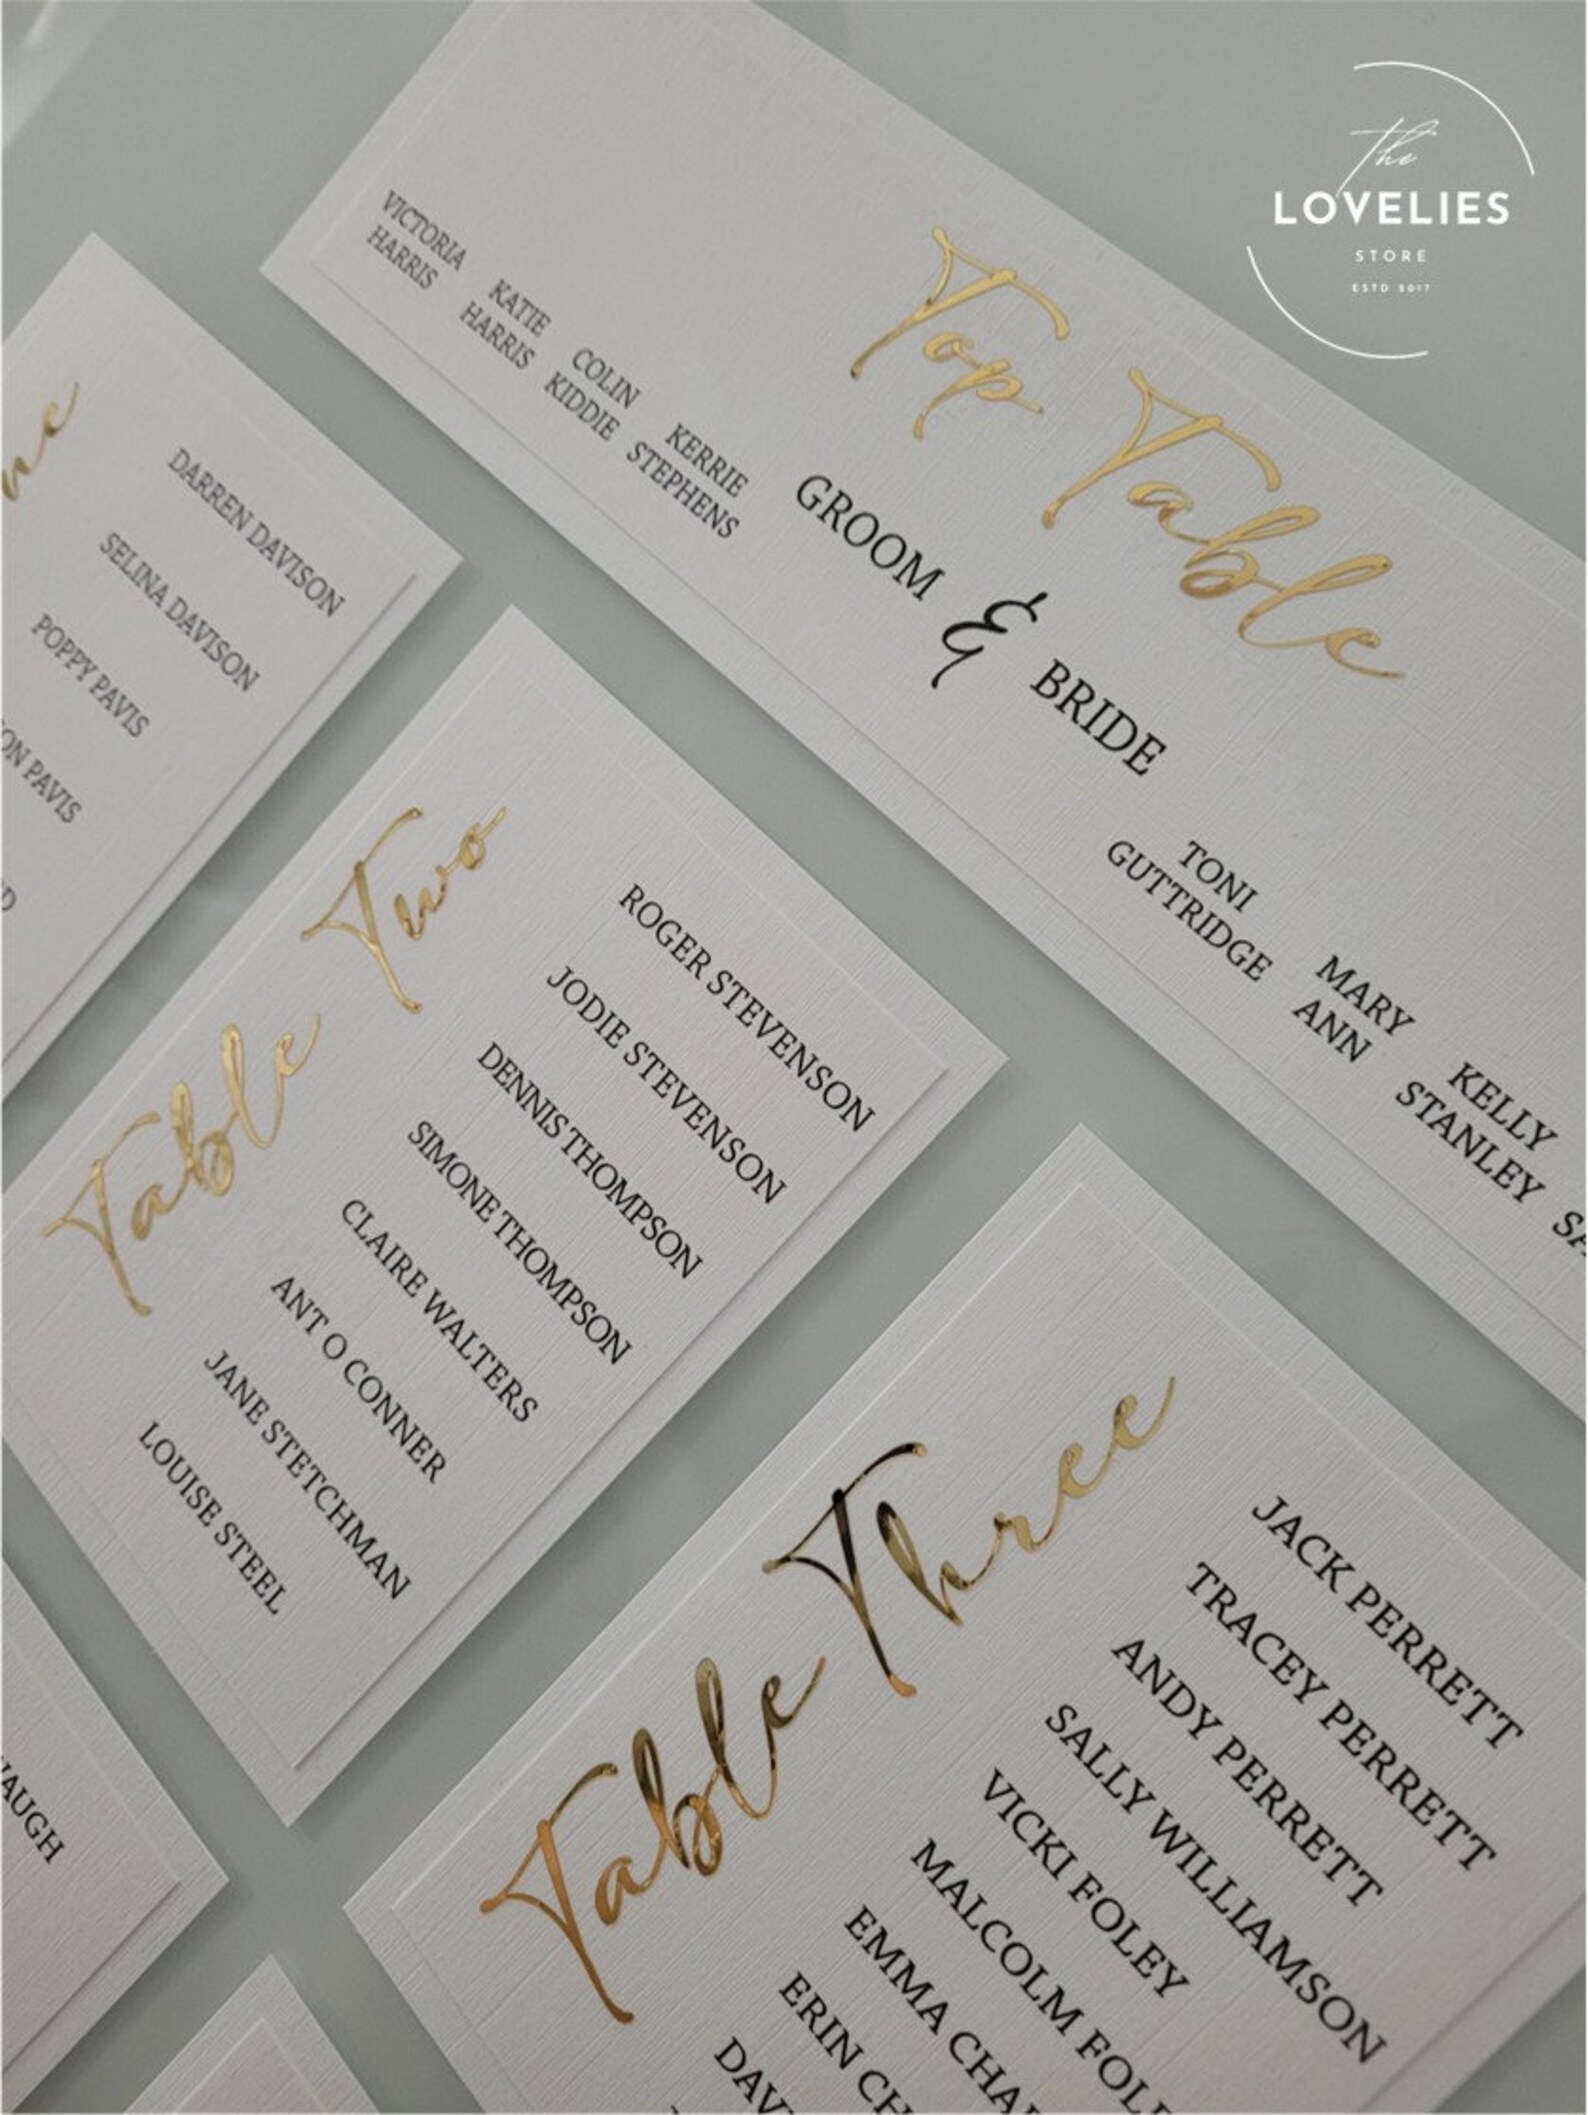 the
LOVELIES
STORE
ESTD 2017
Top Table
VICTORIA
HARRIS
KATIE
HARRIS
COLIN
KIDDIE
KERRIE
STEPHENS
GROOM & BRIDE
TONI
GUTTRIDGE
MARY
ANN
KELLY
STANLEY
DARREN DAVISON
SELINA DAVISON
POPPY PAVIS
PAVIS
Table Two
ROGER STEVENSON
JODIE STEVENSON
DENNIS THOMPSON
SIMONE THOMPSON
CLAIRE WALTERS
ANT O CONNER
JANE STETCHMAN
LOUISE STEEL
Table Three
JACK PERRETT
TRACEY PERRETT
ANDY PERRETT
SALLY WILLIAMSON
VICKI FOLEY
MALCOLM
EMMA
ERIN